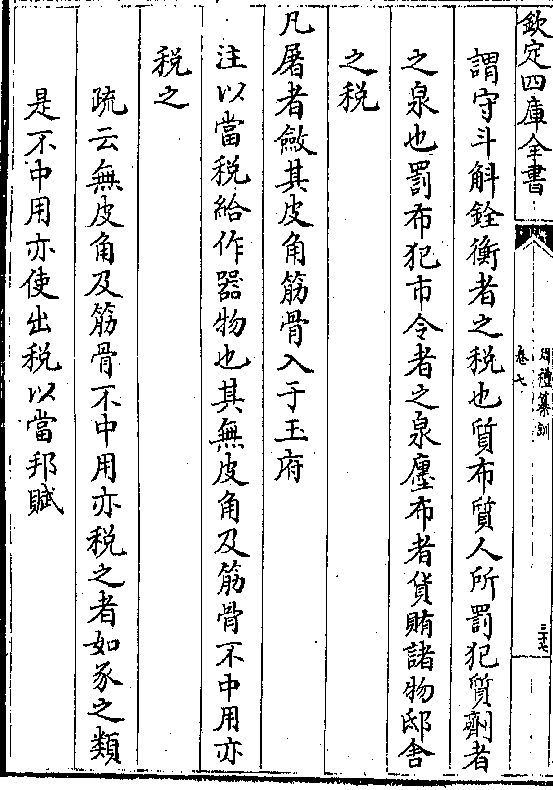 欽定四庫全書
周禮纂訓
卷七
謂守斗斛銓衡者之税也質布質人所罰犯質劑者
之泉也罰布犯市令者之泉廛布者貨賄諸物邸舍
之税
凡屠者斂其皮角筋骨入于玉府
注以當税給作器物也其無皮角及筋骨不中用亦
税之
疏云無皮角及筋骨不中用亦税之者如豕之類
是不中用亦使出税以當邦賦